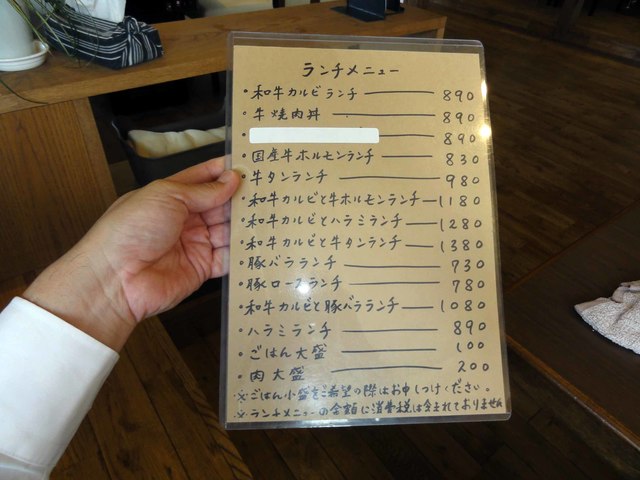 ランチメニュー
・和牛カルビランチ 890
・牛焼肉丼 890
・ 890
・国産牛ホルモンランチ 830
・牛タンランチ 980
・和牛カルビと牛ホルモンランチ 1180
・和牛カルビとハラミランチ 1280
・和牛カルビと牛タンランチ 1380
・豚バラランチ 730
・豚ロースランチ 780
・和牛カルビと豚バラランチ 1080
・ハラミランチ 890
・ごはん大盛 100
・肉大盛 200
※ごはん小盛をご希望の際はお申しつけください。
※ランチメニューの金額に消費税は含まれておりません